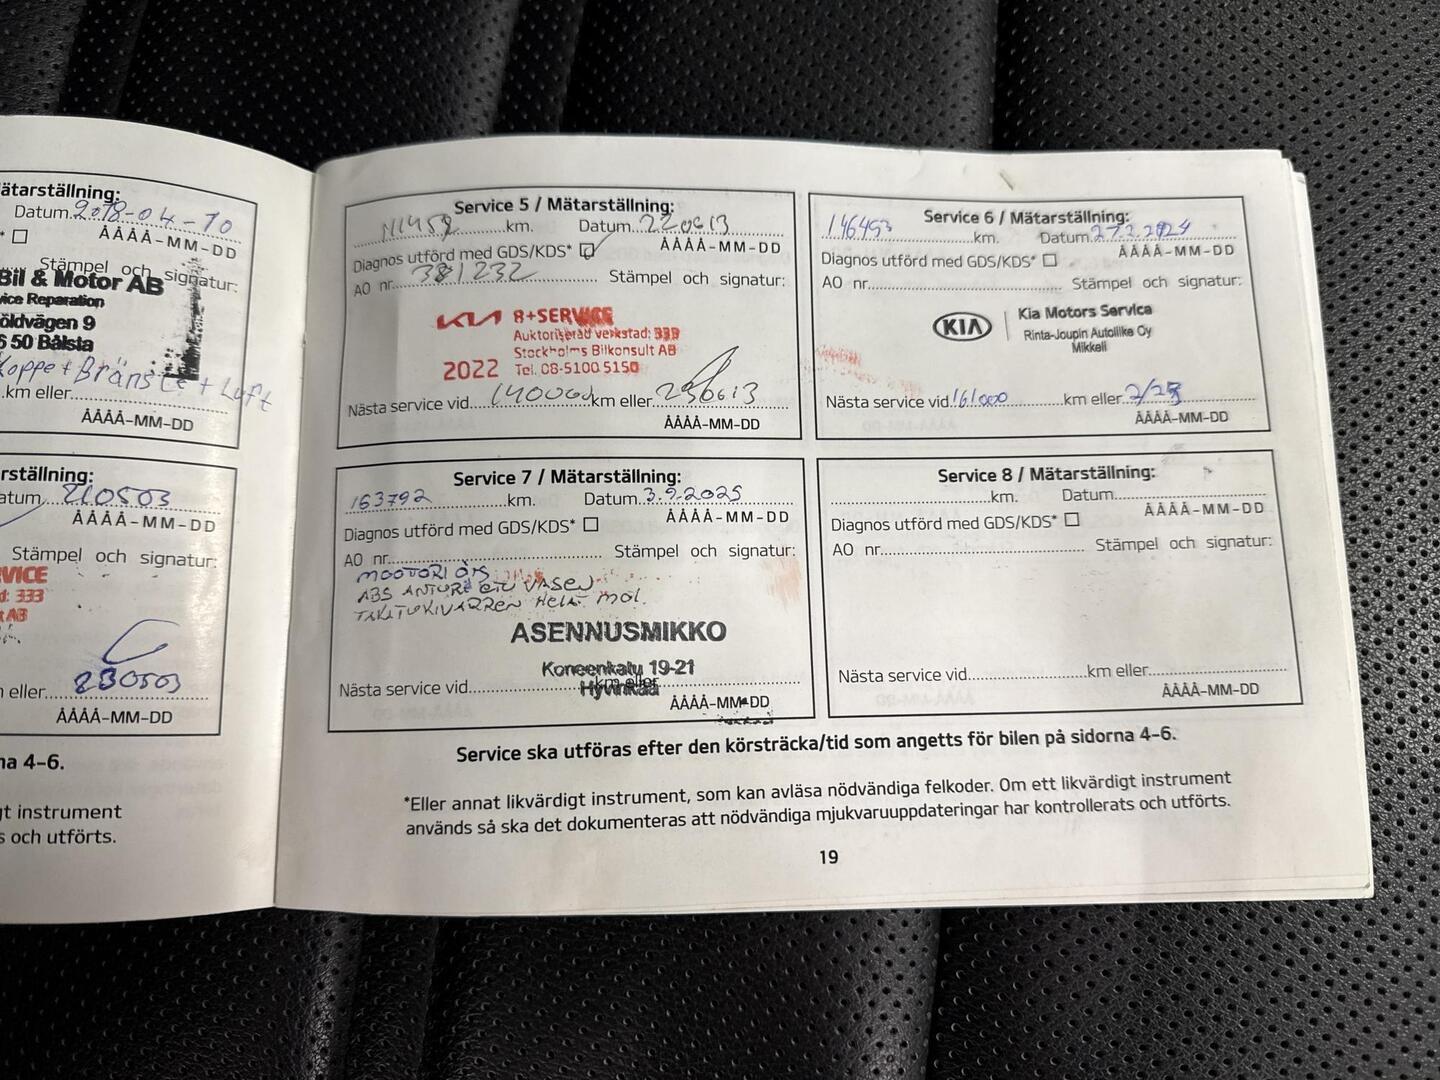 Mätarställning:
Datum 2018-04-10
ÅÅÅÅ-MM-DD
Stämpel och signatur:
Bil & Motor AB
vice Reparation
öldvägen 9
6 50 Bålsta
Koppe + Bränsle + Luft
km eller
ÅÅÅÅ-MM-DD
rställning:
atum 210503
ÅÅÅÅ-MM-DD
Stämpel och signatur:
VICE
d: 333
AB
n eller 230503
ÅÅÅÅ-MM-DD
na 4-6.
gt instrument
s och utförts.
Service 5 / Mätarställning:
111458 km. Datum 220613
ÅÅÅÅ-MM-DD
Diagnos utförd med GDS/KDS*
AO nr. 381232 Stämpel och signatur:
KIA 8+SERVICE
Auktoriserad verkstad: 333
Stockholms Bilkonsult AB
2022 Tel. 08-5100 5150
Nästa service vid 140000 km eller 230613
ÅÅÅÅ-MM-DD
Service 6 / Mätarställning:
146453 km. Datum 27.2.2024
ÅÅÅÅ-MM-DD
Diagnos utförd med GDS/KDS*
AO nr. Stämpel och signatur:
KIA Kia Motors Service
Rinta-Joupin Autoliike Oy
Mikkeli
Nästa service vid 161000 km eller 2/25
ÅÅÅÅ-MM-DD
Service 7 / Mätarställning:
163792 km. Datum 3.9.2025
ÅÅÅÅ-MM-DD
Diagnos utförd med GDS/KDS*
AO nr. Stämpel och signatur:
MOOTTORI ÖLJ
ABS ANTURI ETU VASEN
TAKATUKIVARREN HELA mol.
ASENNUSMIKKO
Koneenkatu 19-21
Hyvinkää
Nästa service vid km eller
ÅÅÅÅ-MM-DD
Service 8 / Mätarställning:
km. Datum
ÅÅÅÅ-MM-DD
Diagnos utförd med GDS/KDS*
AO nr. Stämpel och signatur:
Nästa service vid km eller
ÅÅÅÅ-MM-DD
Service ska utföras efter den körsträcka/tid som angetts för bilen på sidorna 4-6.
*Eller annat likvärdigt instrument, som kan avläsa nödvändiga felkoder. Om ett likvärdigt instrument
används så ska det dokumenteras att nödvändiga mjukvaruuppdateringar har kontrollerats och utförts.
19